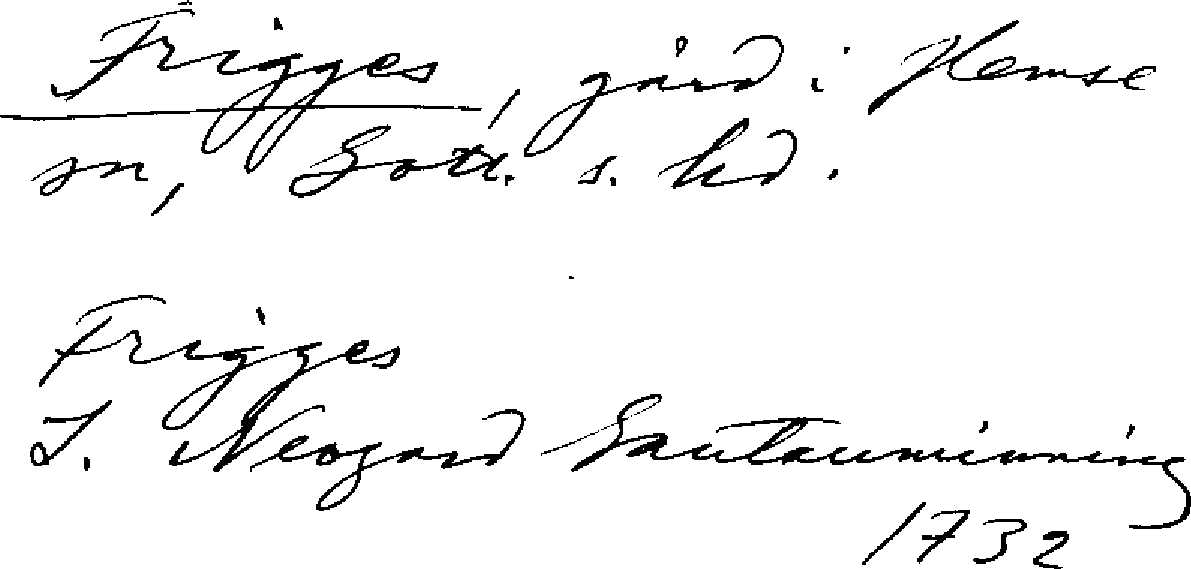 Frigges, gård i Hemse
sn, Gotl. s. hd.
Frigges
J. Neogard Gautauminning
1732